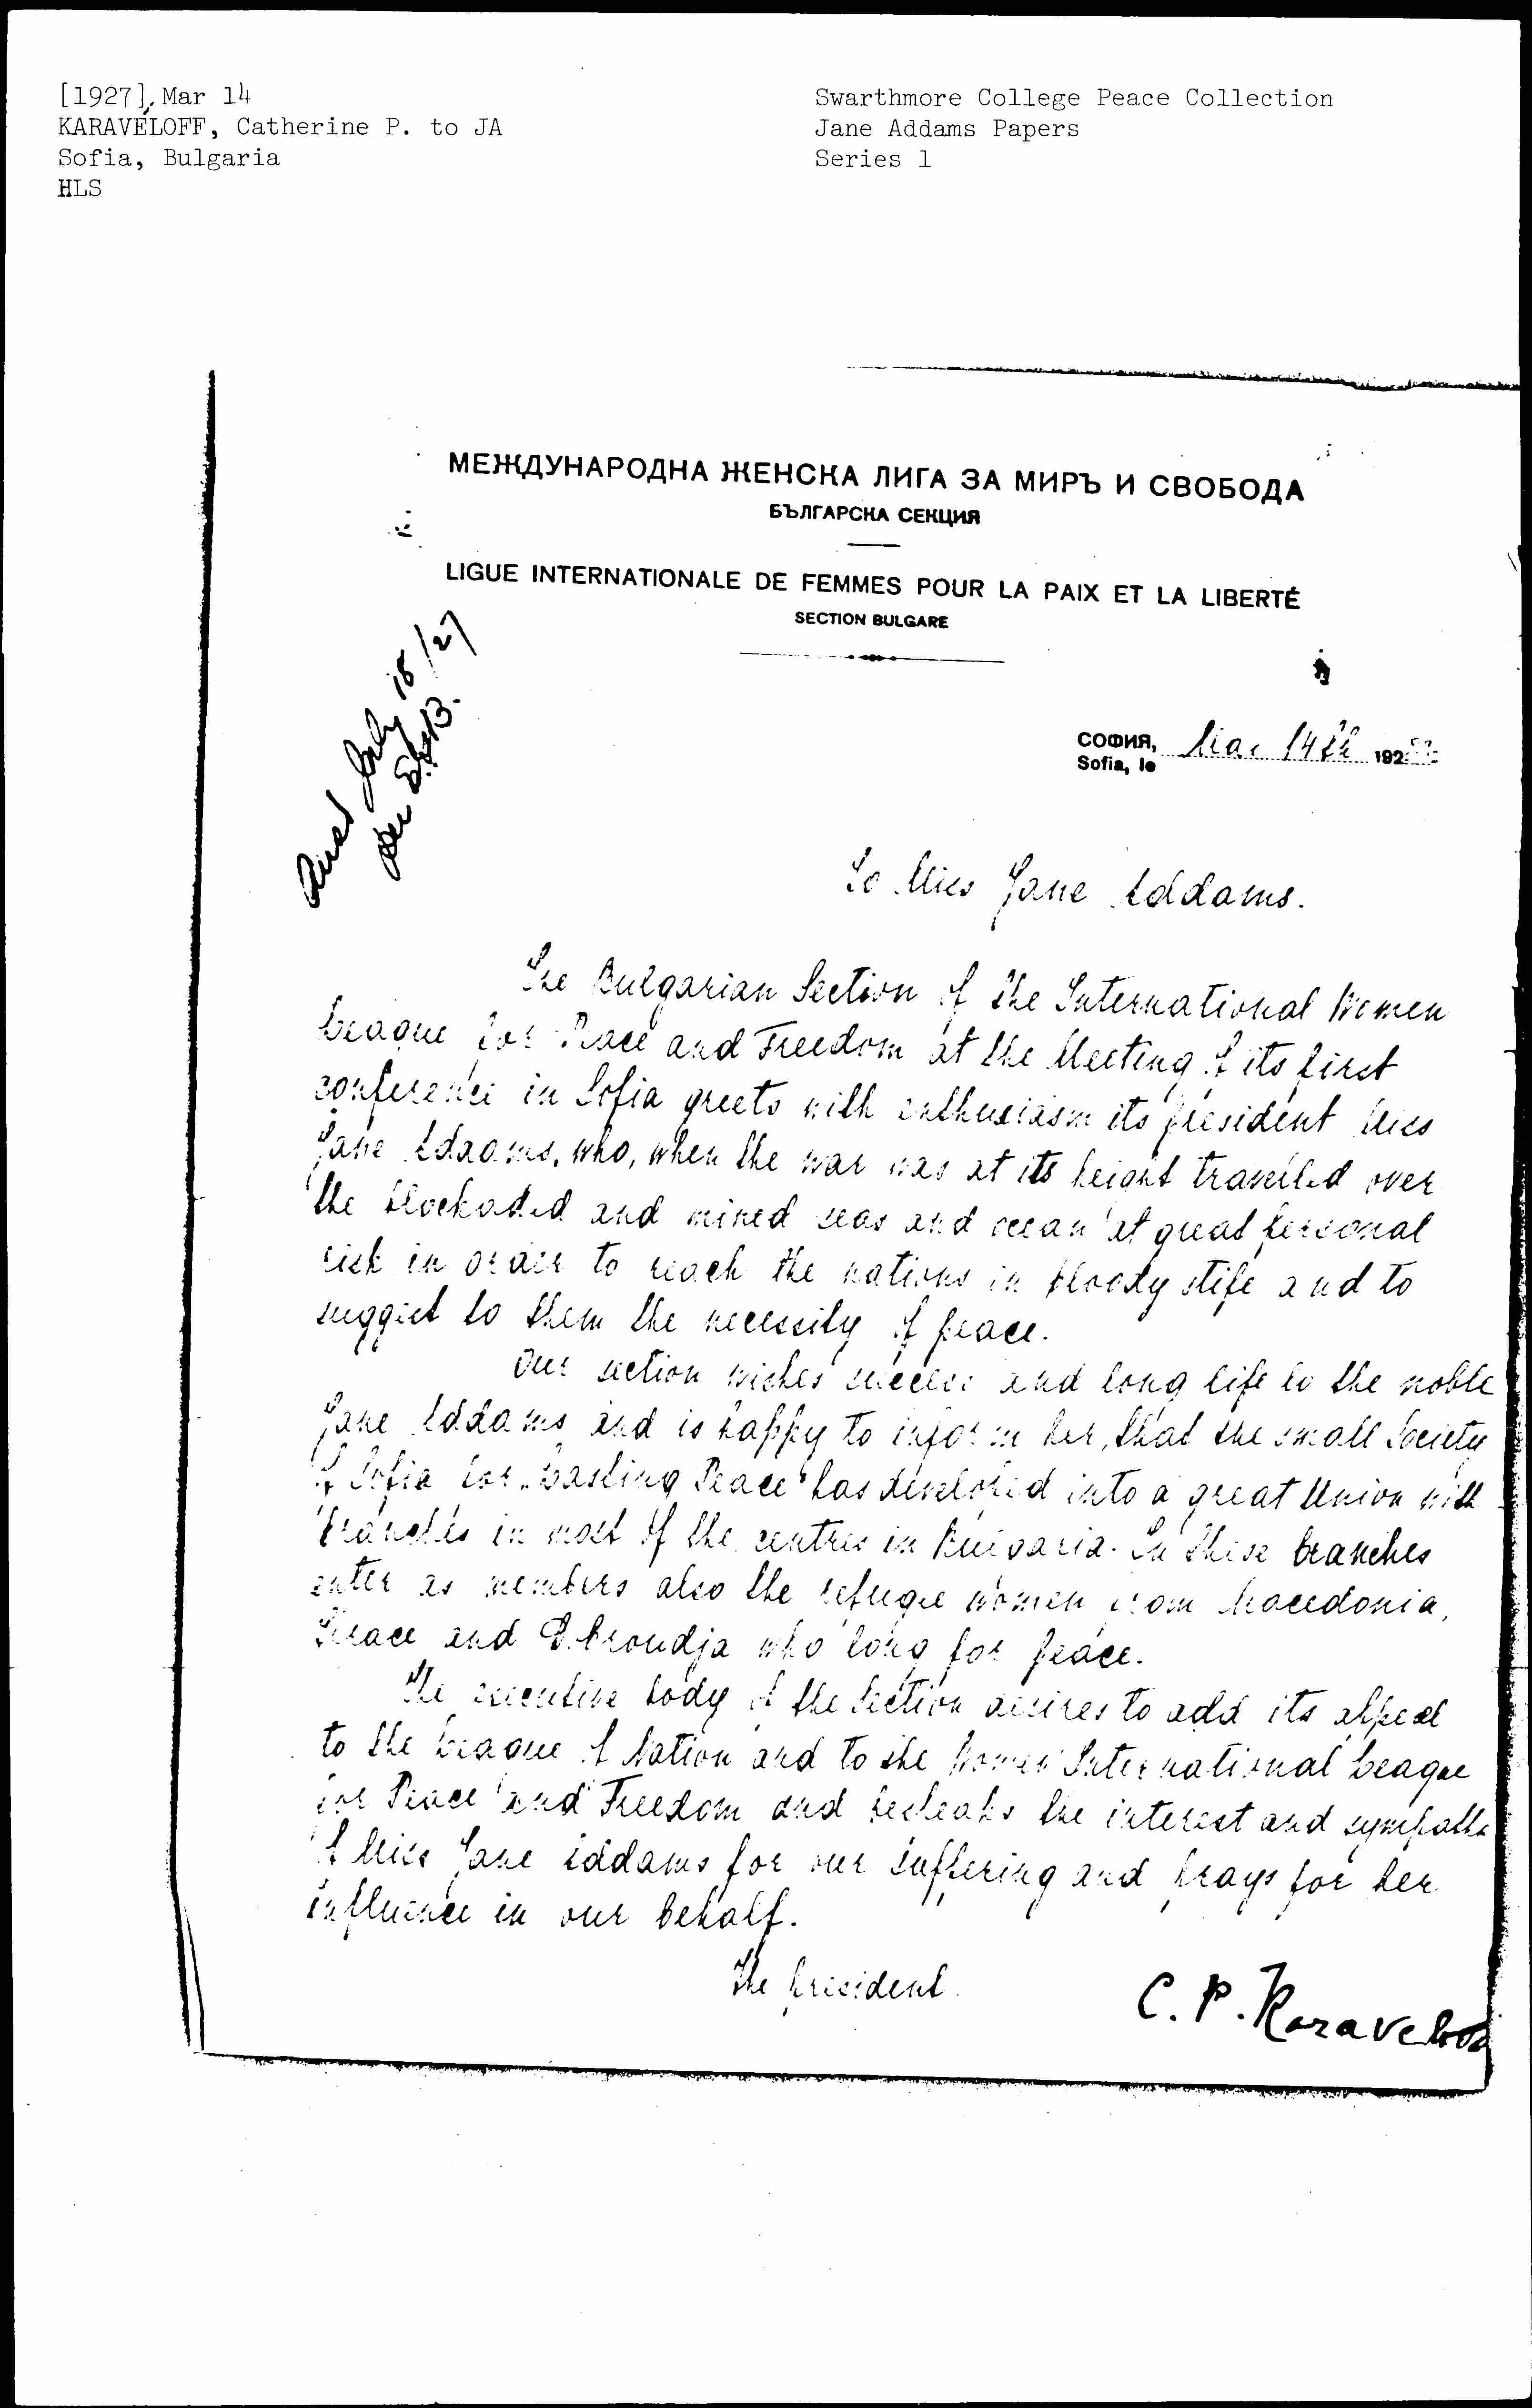 [1927], Mar 14
KARAVÉLOFF, Catherine P. to JA
Sofia, Bulgaria
HLS
Swarthmore College Peace Collection
Jane Addams Papers
Series 1
МЕЖДУНАРОДНА ЖЕНСКА ЛИГА ЗА МИРЪ И СВОБОДА
БЪЛГАРСКА СЕКЦИЯ
LIGUE INTERNATIONALE DE FEMMES POUR LA PAIX ET LA LIBERTÉ
SECTION BULGARE
July 18/27
СОФИЯ,
Sofia, le Mar 14th 192
To Miss Jane Addams.
The Bulgarian Section of the International Women
League for Peace and Freedom at the Meeting of its first
conference in Sofia greets with enthusiasm its president Miss
Jane Addams, who, when the war was at its height travelled over
the blockaded and mined seas and ocean at great personal
risk in order to reach the nations in bloody stife and to
suggest to them the necessity of peace.
Our section wishes success and long life to the noble
Jane Addams and is happy to inform her, that the small Society
of Sofia for „Lasting Peace" has developed into a great Union with
branches in most of the centres in Bulgaria. In these branches
enter as members also the refugee women from Macedonia,
Thrace and Dobroudja who long for peace.
The executive body of the Section desires to add its appeal
to the League of Nation and to the Women International League
for Peace and Freedom and bespeaks the interest and sympathy
of Miss Jane Addams for our suffering and prays for her
influence in our behalf.
The president.
C. P. Karaveloff